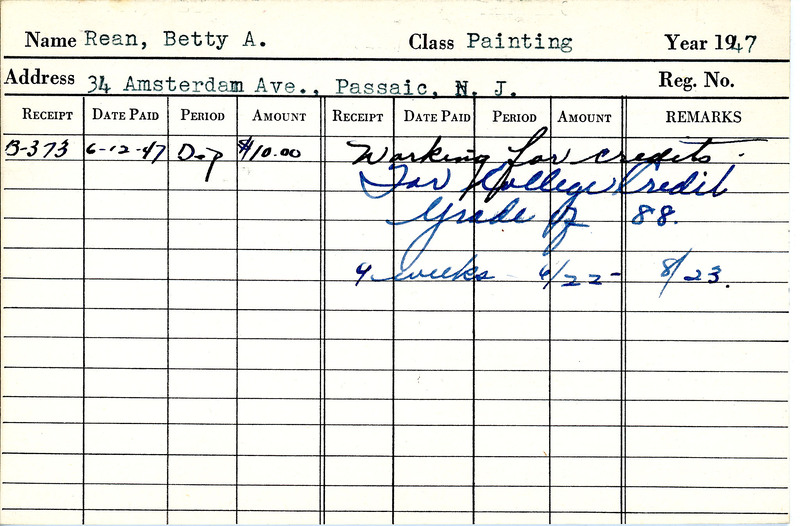 Name Rean, Betty A. Class Painting Year 1947
Address 34 Amsterdam Ave., Passaic, N. J. Reg. No.
RECEIPT DATE PAID PERIOD AMOUNT RECEIPT DATE PAID PERIOD AMOUNT REMARKS
B-373 6-12-47 Dep $10.00 Working for credits.
For College Credit
Grade of 88.
9 weeks 6/22- 8/23.